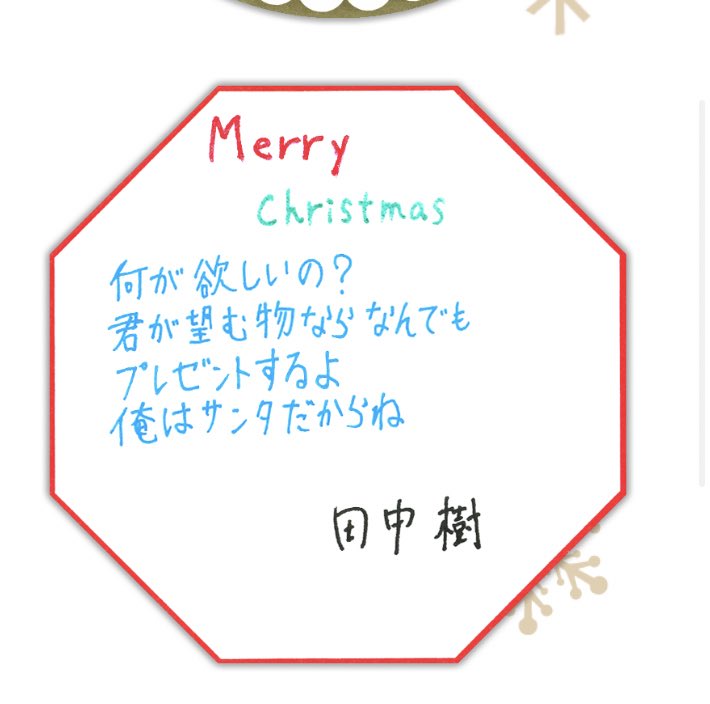 Merry
Christmas
何が欲しいの？
君が望む物ならなんでも
プレゼントするよ
俺はサンタだからね
田中樹